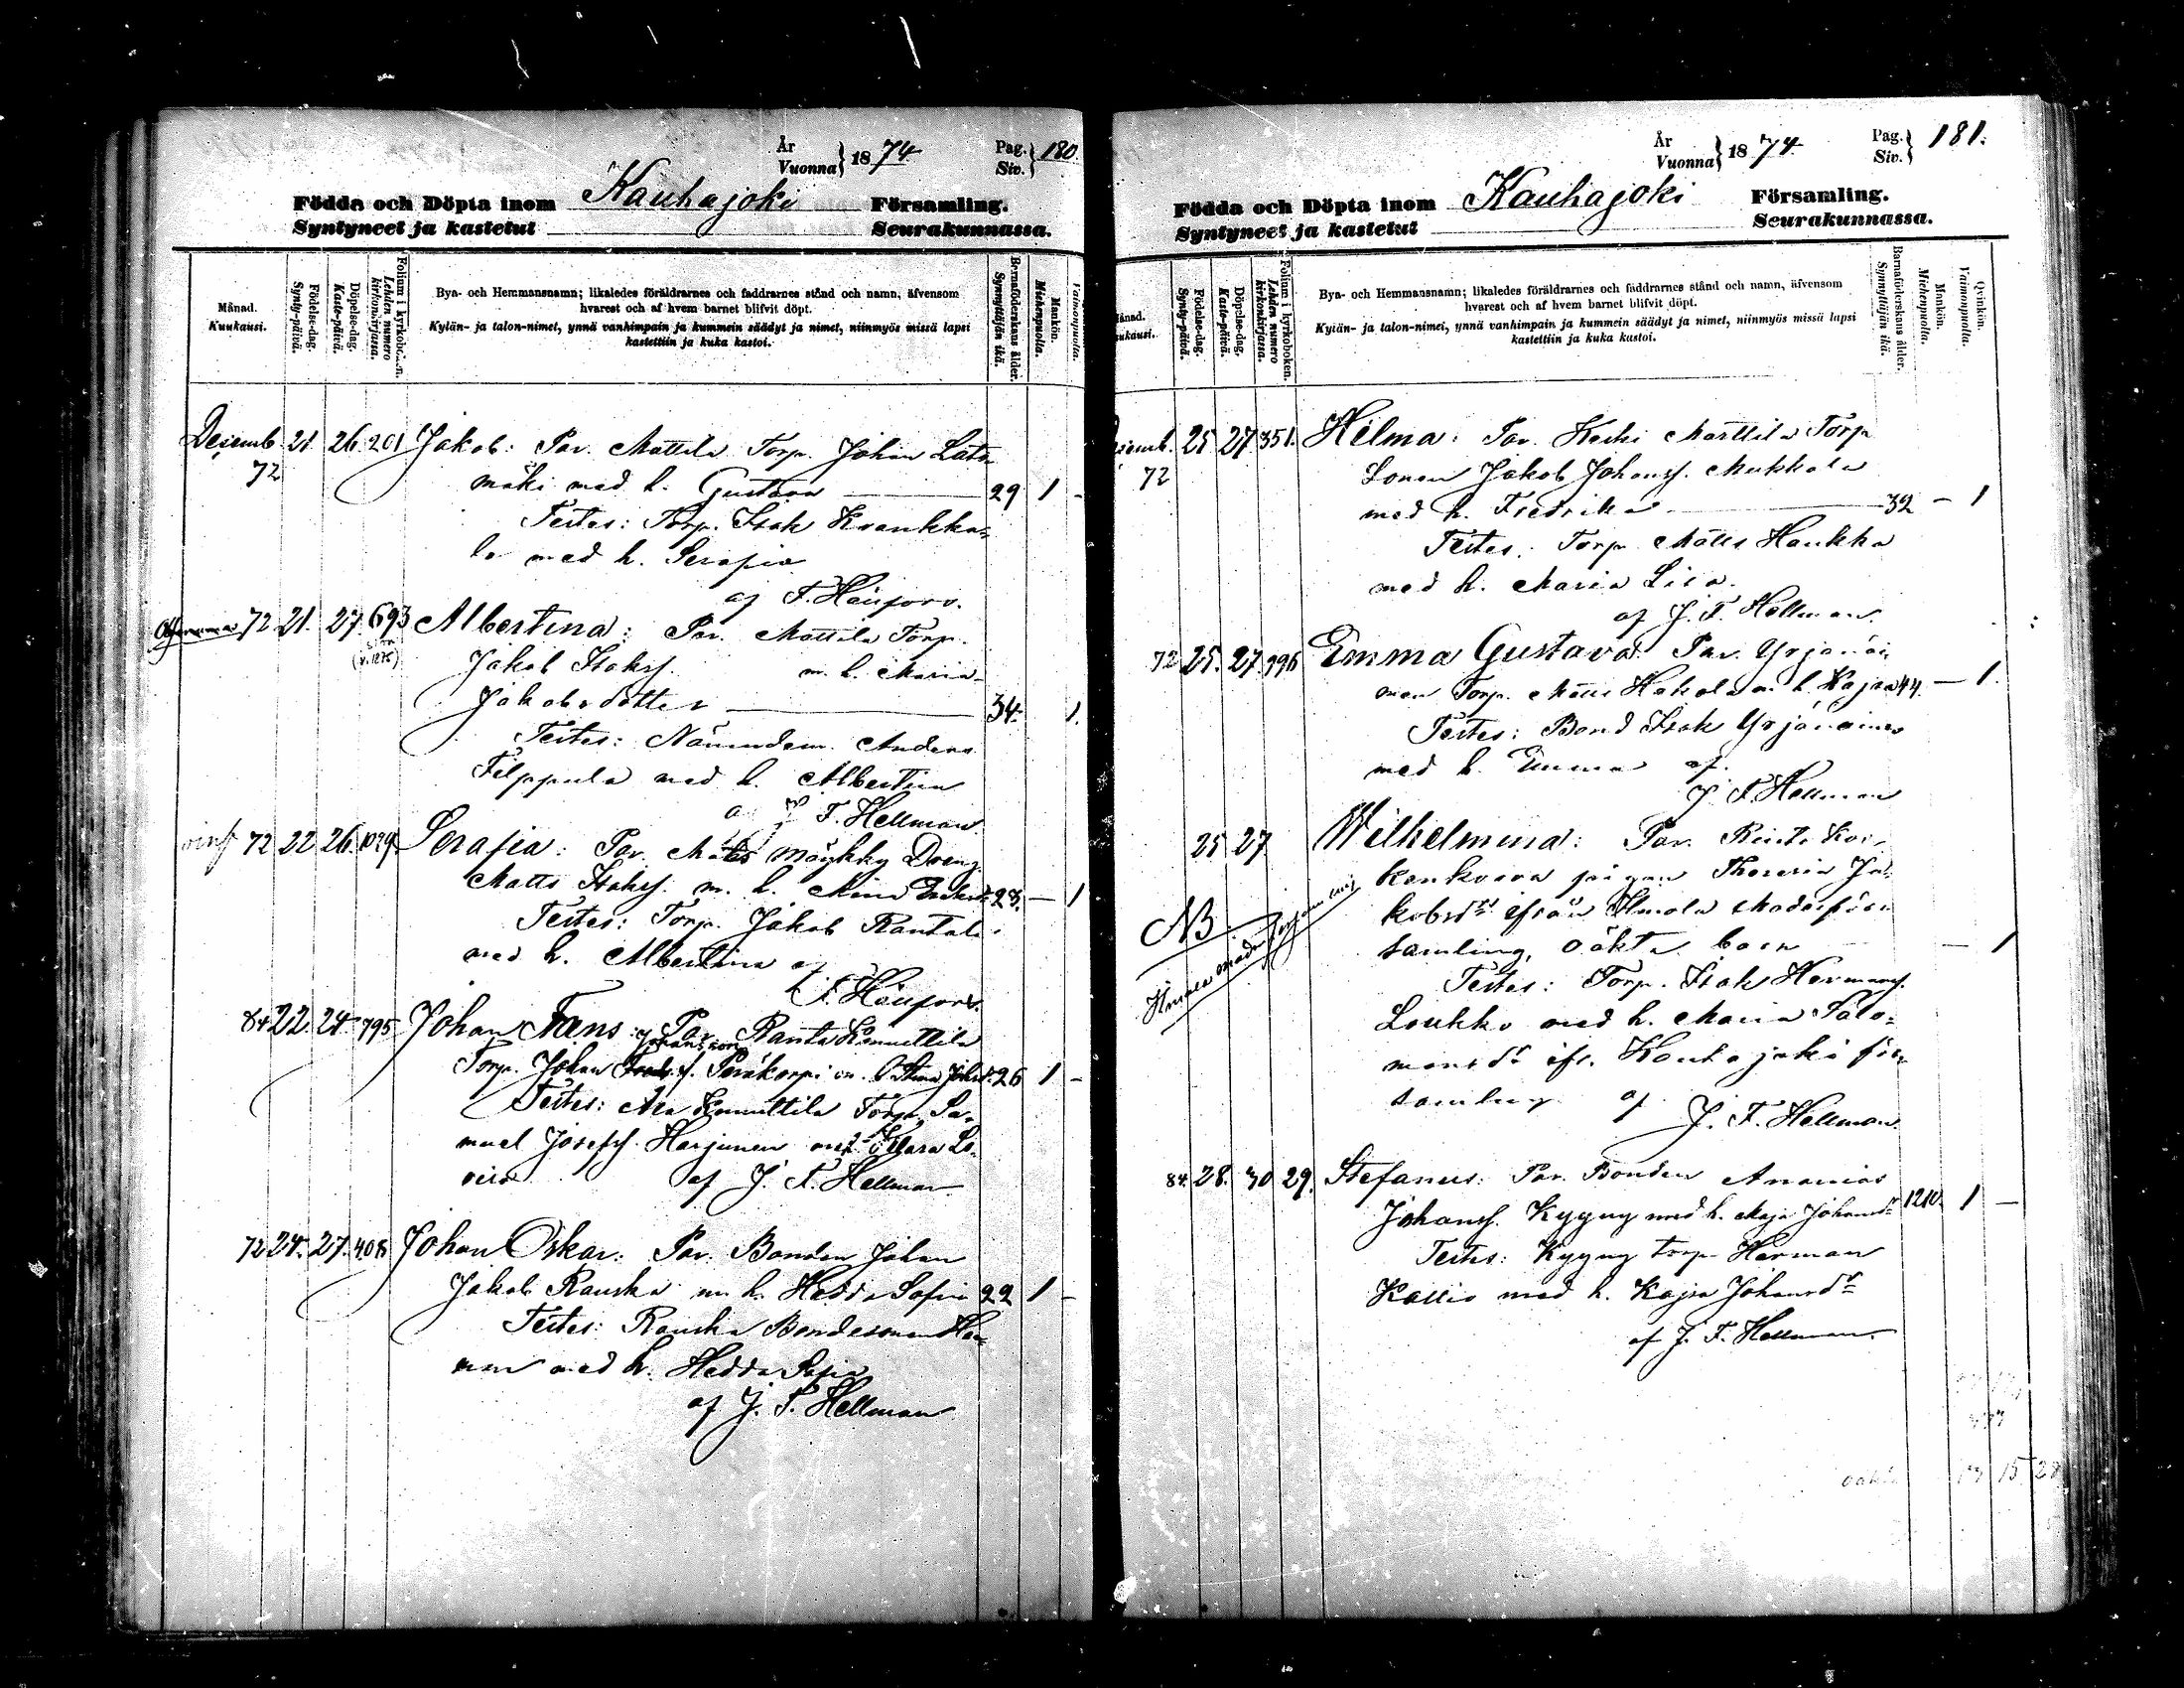 År
Vuonna } 1874 Pag. Siv. } 180.
Födda och Döpta inom Kauhajoki Församling.
Syntyneet ja kastetut Seurakunnassa.
Månad. Kuukausi.
Födelse-dag. Synty-päivä.
Döpelse-dag. Kaste-päivä.
Folium i kyrkoboken. Lehden numero kirkonkirjassa.
Bya- och Hemmansnamn; likaledes föräldrarnes och faddrarnes stånd och namn, äfvensom
hvarest och af hvem barnet blifvit döpt.
Kylän- ja talon-nimet, ynnä vanhimpain ja kummein säädyt ja nimet, niinmyös missä lapsi
kastettiin ja kuka kastoi.
Barnaföderskans ålder. Synnyttäjän ikä.
Mankön. Miehenpuolia.
Vaimonpuolia.
Desemb. 21 26 201 Jakob: Par. Mattila Torp. Johan Lato
72 mäki med h. Gustava 29 1 -
Testes: Torp. Isak Krankka=
la med h. Serafia
af F. Heufors.
72 21. 27. 693 Albertina: Par. Mattila Torp.
(v. 1875) Jakob Isaks. m. h. Maria
Jakobsdotter 34. 1.
Testes: Nämndem. Anders
Filppula med h. Albertina
a J. F. Hellman
72 22 26. 1029. Serafia: Par. Möykky Dräng
Matts Isaks. m. h. Mina 23. - 1
Testes: Torp. Jakob Rantala
med h. Albertina af
F. Heufors.
84 22. 24. 795 Johan Frans: Par. Ranta Knuuttila
Johansson
Torp. Johan Peräkorpi m. h. Stina Johsd. 26 1 -
Testes: Ala Knuuttila Torp. Sa=
muel Josefs. Harjunen med h. Klara Lo=
visa af J. F. Hellman.
72 24. 27. 408 Johan Oskar: Par. Bonden Johan
Jakob Rauska m. h. Hedda Sofia 22 1 -
Testes: Rauska Bondesonen Her=
man med h. Hedda Sofia
af J. F. Hellman
År
Vuonna } 1874. Pag. Siv. } 181.
Födda och Döpta inom Kauhajoki Församling.
Syntyneet ja kastetut Seurakunnassa.
Månad. Kuukausi.
Födelse-dag. Synty-päivä.
Döpelse-dag. Kaste-päivä.
Folium i kyrkoboken. Lehden numero kirkonkirjassa.
Bya- och Hemmansnamn; likaledes föräldrarnes och faddrarnes stånd och namn, äfvensom
hvarest och af hvem barnet blifvit döpt.
Kylän- ja talon-nimei, ynnä vanhimpain ja kummein säädyt ja nimet, niinmyös missä lapsi
kastettiin ja kuka kastoi.
Barnaföderskans ålder. Synnyttäjän ikä.
Mankön. Miehenpuolia.
Qvinkön. Vaimonpuolia.
Desemb. 25 27 351. Hilma: Par. Keski Marttila Torp
72 Sonen Jakob Johans. Mukkala
med h. Fredrika 32 - 1
Testes: Torp Matts Haukka
med h. Maria Lisa.
af J. F. Hellman.
72 25. 27. 996 Emma Gustava: Par. Yrjänäi=
nen Torp. Matts Hakola m. h. Kajsa 44. - 1.
Testes: Bond Isak Yrjänäinen
med h. Emma af
J. F. Hellman
25 27 Wilhelmina: Par. Kos=
kenkorva pigan Theresia Ja=
NB kobsdr ifrån Ilmola Moderför=
Ilmola moderförsamling
samling, oäkta barn - 1
Testes: Torp. Isak Hermans.
Loukko med h. Maria Salo=
monsdr ifr. Kauhajoki för=
samling af
J. F. Hellman.
84. 28. 30 29. Stefanus: Par. Bonden Ananias
Johans. Kyyny med h. Maja Johansdr 1210. 1 -
Testes: Kyyny torp. Herman
Kallio med h. Kajsa Johansdr
af J. F. Hellman.
oäkta 13 15 28